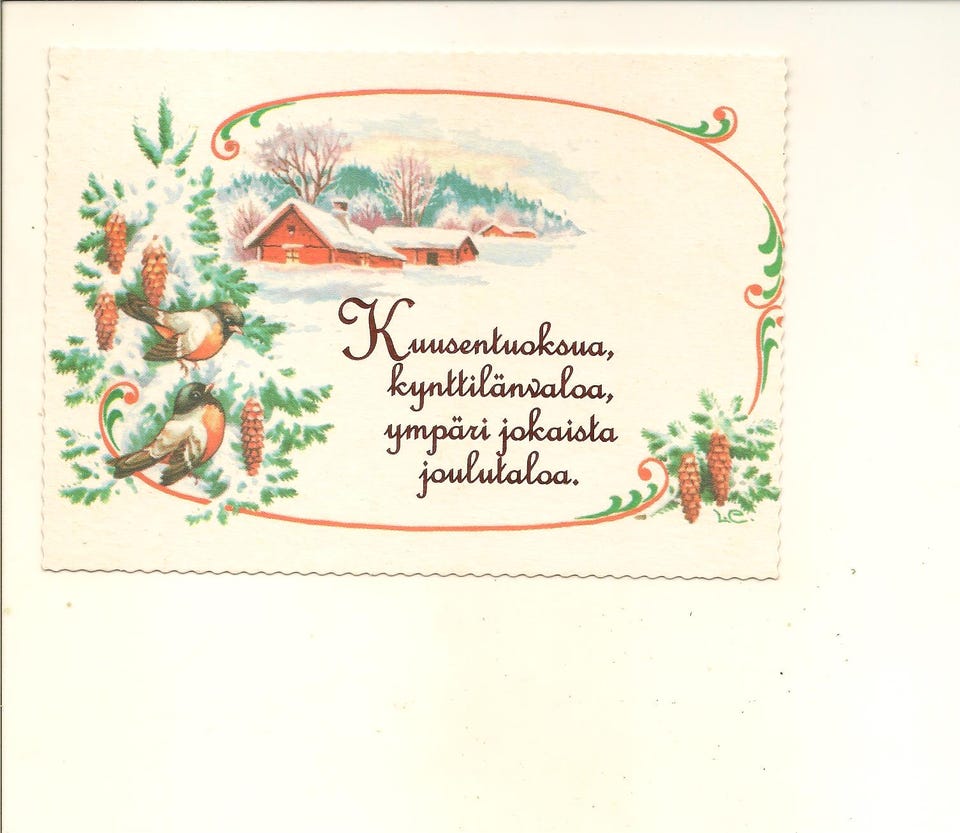 Kuusentuoksua,
kynttilänvaloa,
ympäri jokaista
joulutaloa.
L.C.